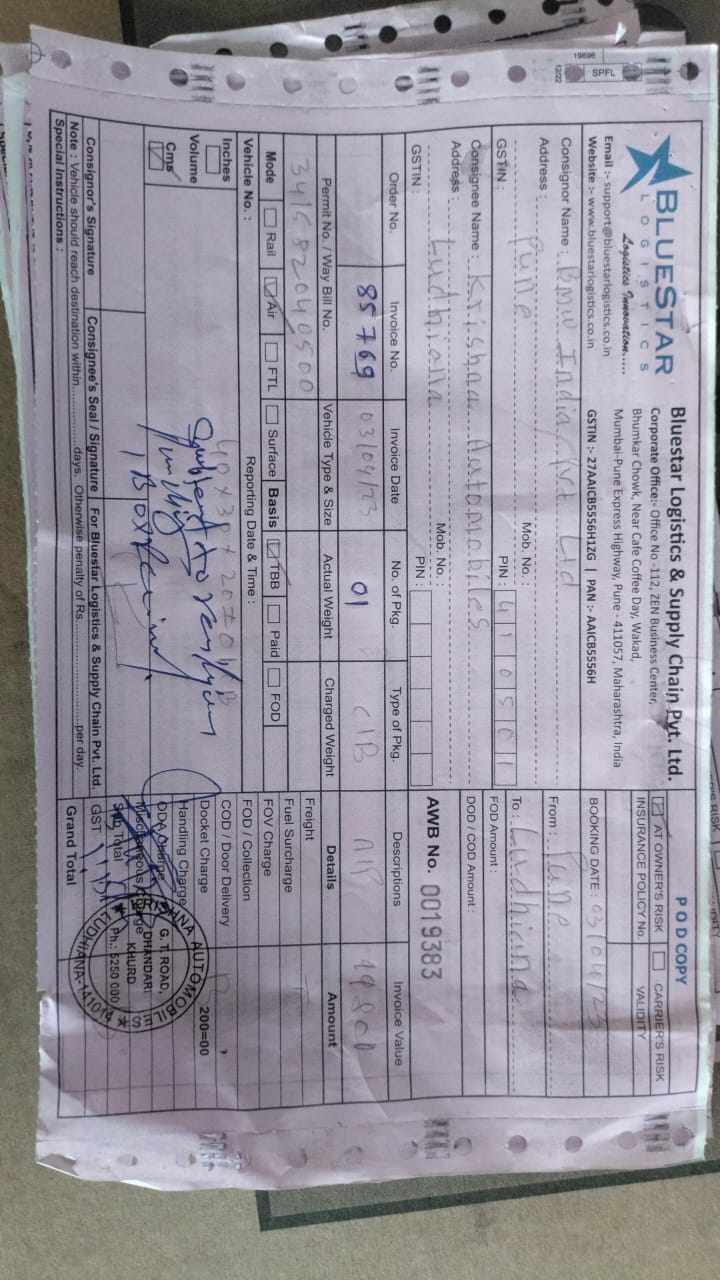 BLUESTAR
LOGISTICS
Logistics Innovation.....
Email :- support@bluestarlogistics.co.in
Website :- www.bluestarlogistics.co.in
Bluestar Logistics & Supply Chain Pvt. Ltd.
Corporate Office:- Office No -112, ZEN Business Center,
Bhumkar Chowk, Near Cafe Coffee Day, Wakad,
Mumbai-Pune Express Highway, Pune - 411057, Maharashtra, India
GSTIN :- 27AAICB5556H1ZG | PAN :- AAICB5556H
POD COPY
AT OWNER'S RISK CARRIER'S RISK
INSURANCE POLICY No. VALIDITY
BOOKING DATE : 03/04/23
Consignor Name : BMW India Pvt Ltd
Address : Pune
Mob. No. :
GSTIN : PIN : 410501
From : Pune
To : Ludhiana
FOD Amount :
DOD / COD Amount :
Consignee Name : Krishna Automobiles
Address : Ludhiana
Mob. No. :
GSTIN : PIN :
AWB No. 0019383
Order No. Invoice No. Invoice Date No. of Pkg. Type of Pkg. Descriptions Invoice Value
85769 03/04/23 01 C/B
Permit No. / Way Bill No. Vehicle Type & Size Actual Weight Charged Weight Details Amount
341582040500
Mode Rail Air FTL Surface Basis TBB Paid FOD
Vehicle No. : Reporting Date & Time :
Inches
Volume
Cms
40x30x20=01
Subject to
1 Box
Freight
Fuel Surcharge
FOV Charge
FOD / Collection
COD / Door Delivery
Docket Charge 200=00
Handling Charge
ODA Charge
Miscellaneous Charge
Sub Total
GST
Grand Total
KRISHNA AUTOMOBILES
G. T. ROAD,
DHANDARI
KHURD
Ph.: 5250 000
LUDHIANA-141014
Consignor's Signature Consignee's Seal / Signature For Bluestar Logistics & Supply Chain Pvt. Ltd.
Note : Vehicle should reach destination within.................days. Otherwise penalty of Rs.............................per day.
Special Instructions :
SPFL
12/22